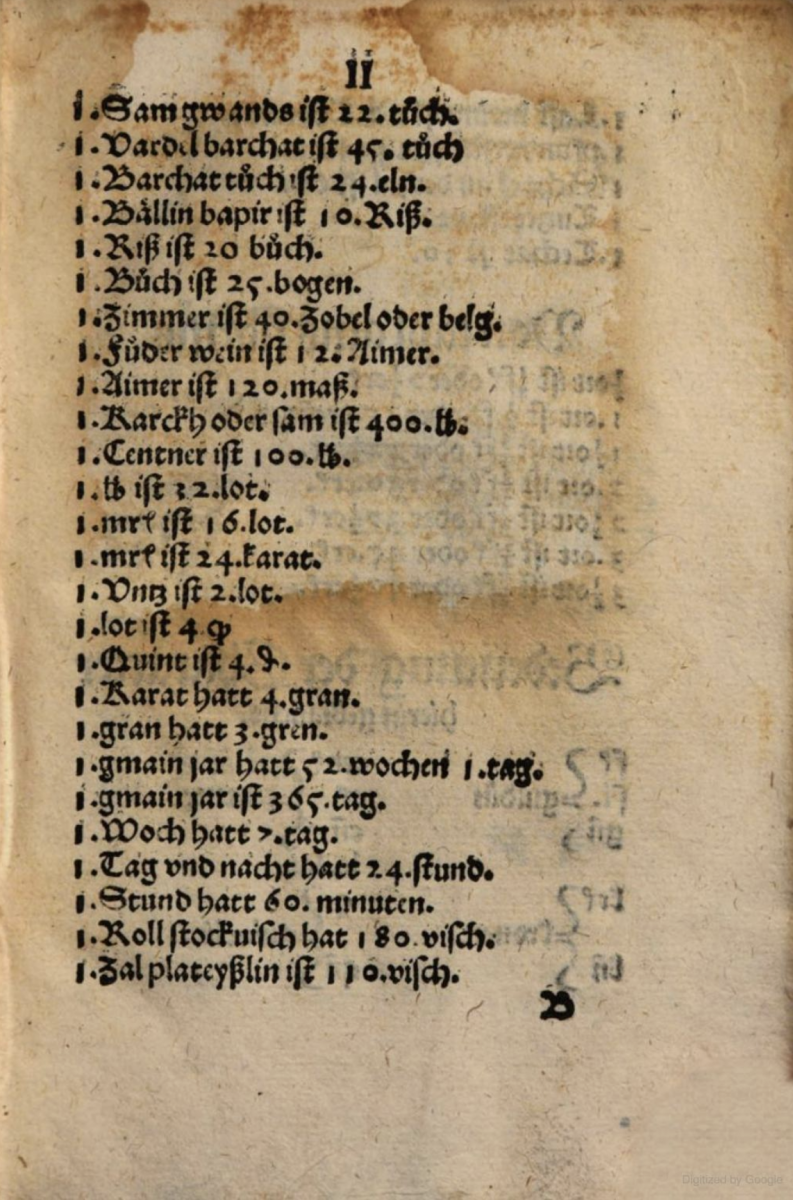 II
1.Sam gwands ist 22.tůch.
1.Vardel barchat ist 45. tůch
1.Barchat tůch ist 24.eln.
1.Bällin bapir ist 10.Riß.
1.Riß ist 20 bůch.
1.Bůch ist 25.bogen.
1.Zimmer ist 40.Zobel oder belg.
1.Fůder wein ist 12.Aimer.
1.Aimer ist 120.maß.
1.Karckh oder sam ist 400.℔.
1.Centner ist 100.℔.
1.℔ ist 32.lot.
1.mrk ist 16.lot.
1.mrk ist 24.karat.
1.Vntz ist 2.lot.
1.lot ist 4
1.Quint ist 4.₰.
1.Karat hatt 4.gran.
1.gran hatt 3.gren.
1.gmain jar hatt 52.wochen 1.tag.
1.gmain jar ist 365.tag.
1.Woch hatt 7.tag.
1.Tag vnd nacht hatt 24.stund.
1.Stund hatt 60. minuten.
1.Roll stockuisch hat 180.visch.
1.Zal plateyßlin ist 110.visch.
B
Digitized by Google